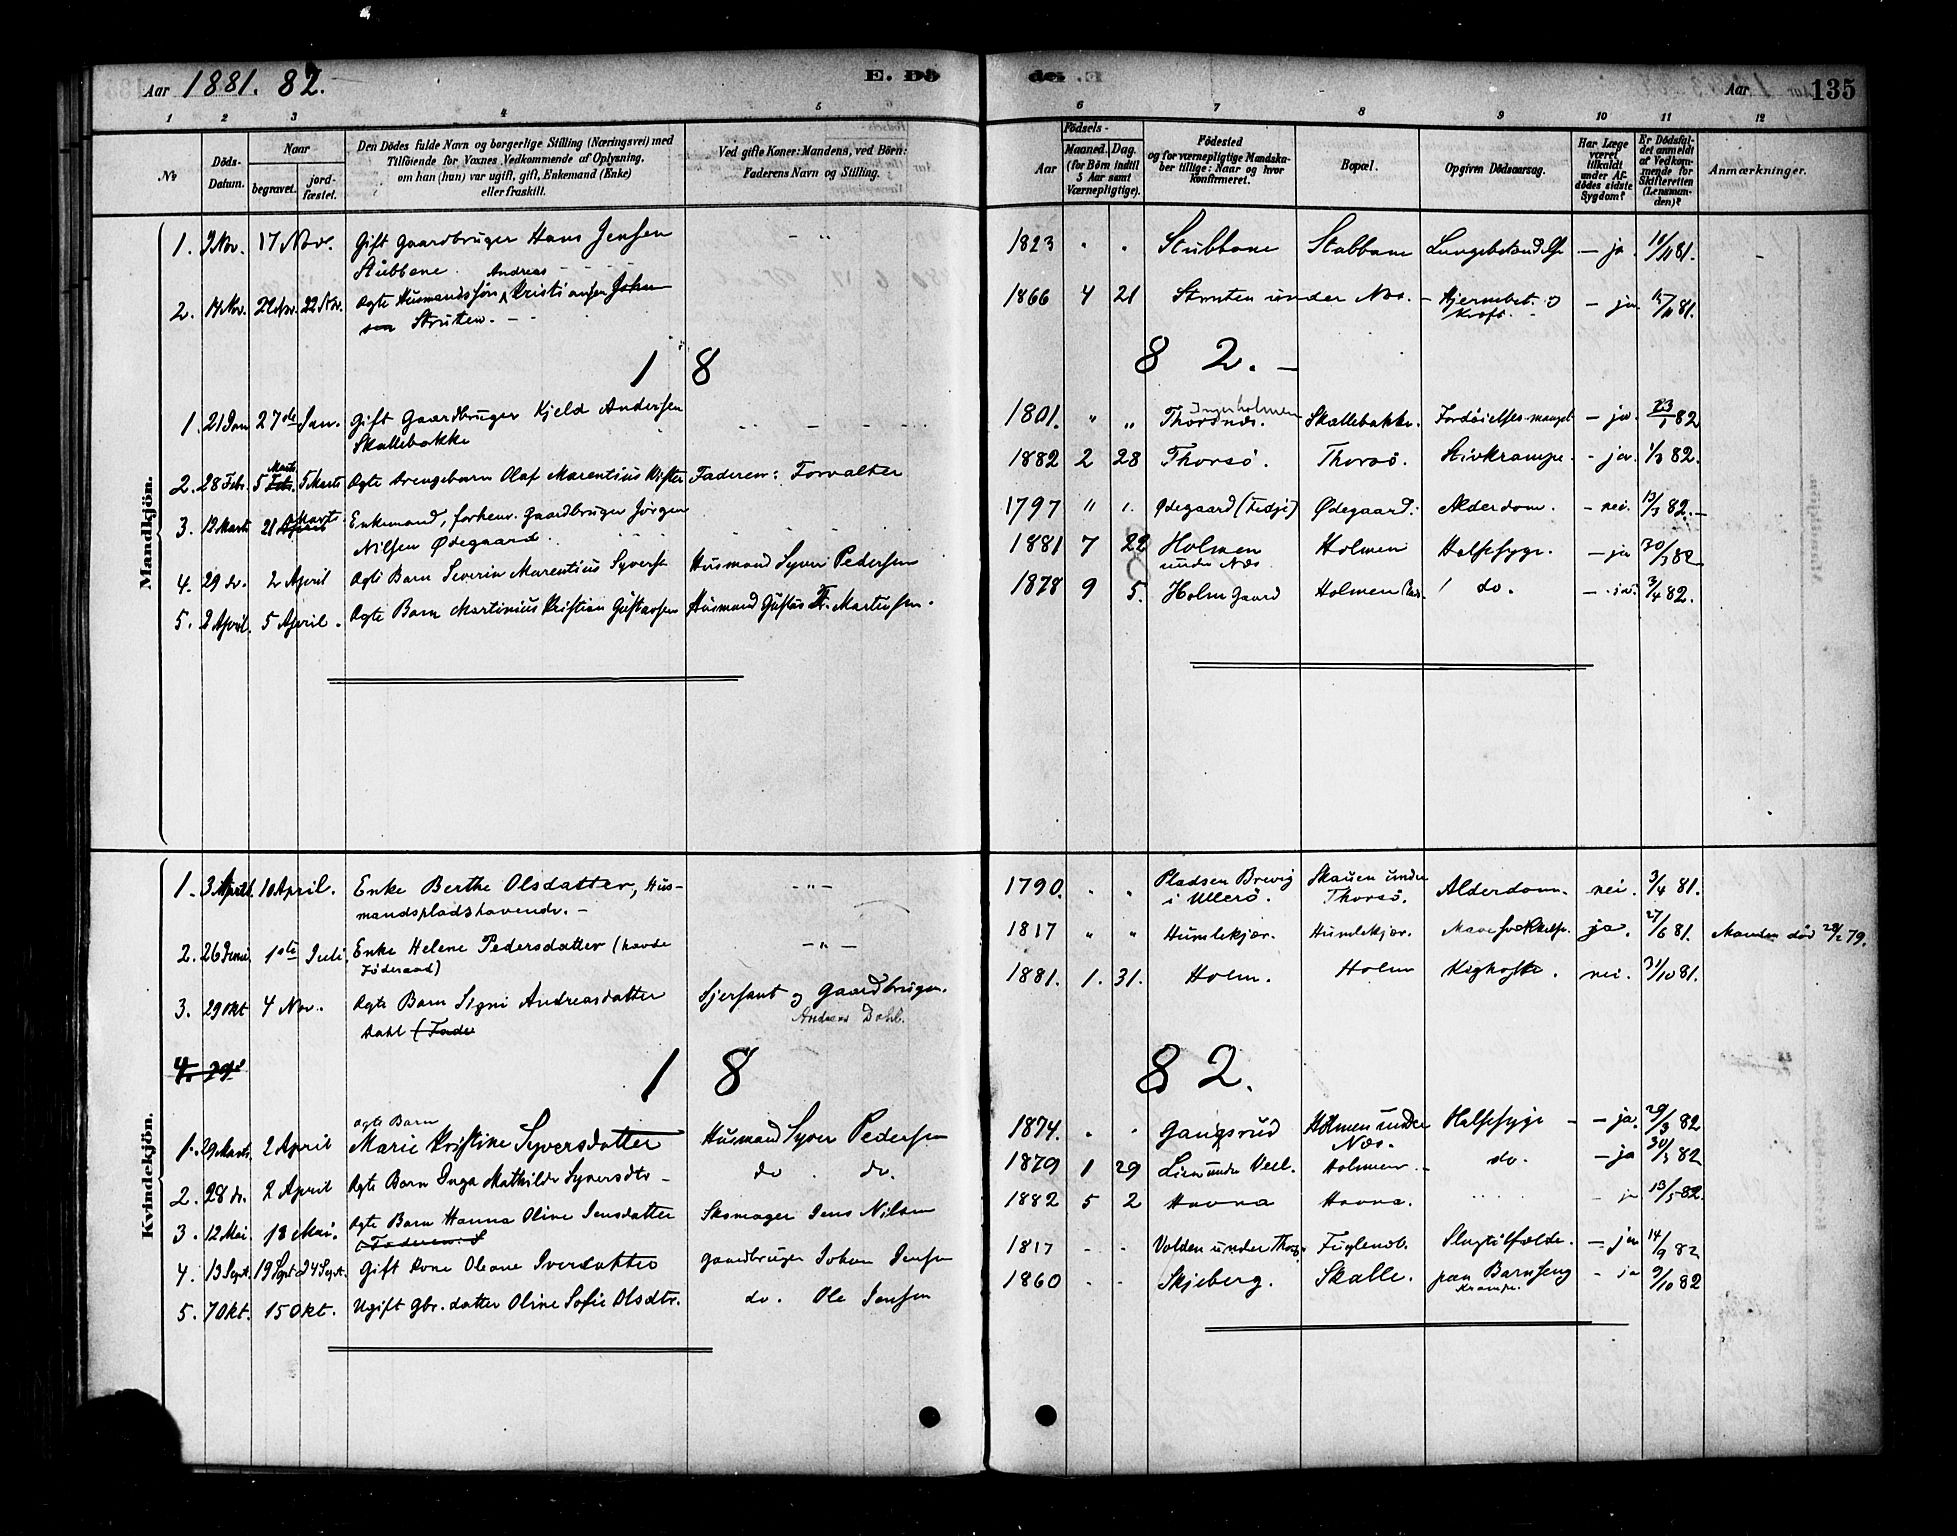 Aar 1881. 82.
E. Dö
1 2 3 4 5
No
Döds-Datum.
Naar
begravet.
jord-fæstet.
Den Dödes fulde Navn og borgerlige Stilling (Næringsvei) med
Tilföiende for Voxnes Vedkommende af Oplysning,
om han (hun) var ugift, gift, Enkemand (Enke)
eller fraskilt.
Ved gifte Koner: Mandens, ved Börn:
Faderens Navn og Stilling.
Mandkjön.
1. 9 Nov. 17 Nov. Gift Gaardbruger Hans Jensen
Stubbene.
Andreas
2. 14 Nov. 22 Nov. 22 Nov. Ægte Husmandssøn Kristiansen John
sen Strutten.
1 8
1. 21 Jan 27de Jan. Gift Gaardbruger Kjeld Andersen
Skallebakke
Marts
2. 28 Febr. 5 Febr. 5 Marts Ægte Drengebarn Olaf Marentius Faderen: Forvalter
Marts
3. 12 Marts 21 Enkemand, forhenv. Gaardbruger Jörgen
Nilsen Ødegaard
4. 29 do. 2 April Ægte Barn Severin Marentius Syvers Husmand Syver Pedersen
5. 2 April. 5 April. Ægte Barn Martinius Kristian Gustavsen Husmand Gustav Fr. Martinsen.
Kvindekjön.
1. 3 April 10 April. Enke Berthe Olsdatter, Hus-
mandspladshavende. -
2. 26 Juni 1ste Juli Enke Helene Pedersdatter (havde
Föderaad)
3. 29 Okt 4 Nov. Ægte Barn Signi Andreasdatter Sjersant og Gaardbruger.
Dahl (Fader Andreas Dahl.
4. 29de
1 8
Ægte Barn
1. 29 Marts 2 April Marie Kristine Syversdatter Husmand Syver Pedersen
2. 28 do. 2 April Ægte Barn Inga Mathilde Syversdtr - do do.
3. 12 Mai 18 Mai. Ægte Barn Hanna Oline Jensdatter Skomager Jens Nilsen
Faderen: S
4. 13 Sept. 19 Sept 24 Sept. Gift Kone Oleane Iversdatter Gaardbruger Johan Jensen
5. 7 Okt. 15 Okt. Ugift Gbr. datter Oline Sofie Olsdtr. do. Ole Jensen
de. Aar 135
6 7 8 9 10 11 12
Födsels-
Aar
Maaned. Dag.
(for Börn indtil
5 Aar samt
Værnepligtige).
Födested
og for værnepligtige Mandska-
ber tillige: Naar og hvor
konfirmeret.
Bopæl.
Opgiven Dödsaarsag.
Har Læge
været
tilkaldt
under Af-
dödes sidste
Sygdom?
Er Dödsfal-
det anmeldt
af Vedkom-
mende for
Skifteretten
(Lensman-
den)?
Anmærkninger.
1823 " " Stubbene Stubbene Lungebetændelse - ja 10/11 81.
1866 4 21 Strutten under Næs. - Hjernebet. og - ja 15/11 81.
8 2. -
Ingerholmen
1801. " " Thordnæs. Skallebakke. Fordöielses-mangel - ja 23/1 82
1882 2 28 Thorsö. Thorsö. Stivkrampe. - ja. 1/3 82.
1797 " " Ødegaard Ødegaard: Alderdom. - nei. 13/3 82. -
1881 7 22 Holmen Holmen Halsesyge. - ja 30/3 82
under Næs
1878 9 5. Holmgaard Holmen do. - ja. 3/4 82.
1790. " " Pladsen Brevig Skauen under Alderdom. nei. 3/4 81.
i Ullerö. Thorsö.
1817 " " Humlekjær. Humlekjær. Mavesvækkelse. ja. 27/6 81. Manden död 28/2 79.
1881. 1. 31. Holm. Holm Kighoste. nei. 31/10 81.
8 2.
1874. " " Gangsrud Holmen under Halsesyge - - ja 29/3 82
Næs.
1879 1 29 Lien under Veel. Holmen - do. - ja 30/3 82
1882 5 2 Havna Havna. - ja 13/5 82.
1817 - - Volden under Thors. Fuglevik. Slagtilfælde. - ja 14/9 82
1860 - - Skjeberg. Skalle. paa Barnseng - ja 9/10 82
Krampe.